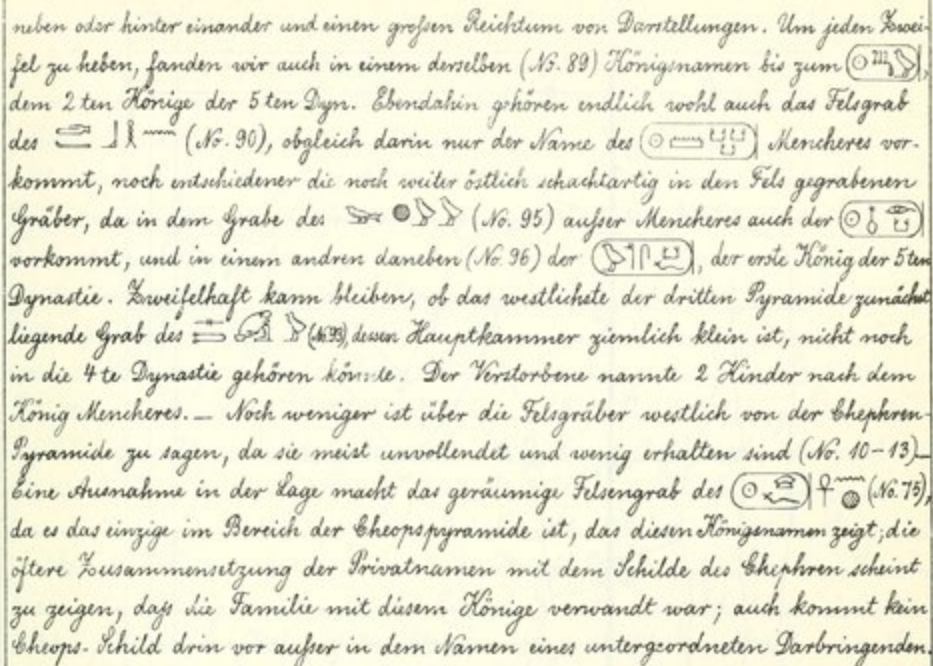 neben oder hinter einander und einen großen Reichtum von Darstellungen. Um jeden Zwei-
fel zu heben, fanden wir auch in einem derselben (No. 89) Königsnamen bis zum
dem 2ten Könige der 5ten Dyn. Ebendahin gehören endlich wohl auch das Felsgrab
des (No. 90), obgleich darin nur der Name des Mencheres vor-
kommt, noch entschiedener die noch weiter östlich schachtartig in den Fels gegrabenen
Gräber, da in dem Grabe des (No. 95) außer Mencheres auch der
vorkommt, und in einem andren daneben (No. 96) der , der erste König der 5ten
Dynastie. Zweifelhaft kann bleiben, ob das westlichste der dritten Pyramide zunächst
liegende Grab des (No. 93), dessen Hauptkammer ziemlich klein ist, nicht noch
in die 4te Dynastie gehören könnte. Der Verstorbene nannte 2 Kinder nach dem
König Mencheres. — Noch weniger ist über die Felsgräber westlich von der Chephren-
Pyramide zu sagen, da sie meist unvollendet und wenig erhalten sind (No. 10–13) —
Eine Ausnahme in der Lage macht das geräumige Felsengrab des (No. 75),
da es das einzige im Bereich der Cheopspyramide ist, das diesen Königsnamen zeigt; die
öftere Zusammensetzung der Privatnamen mit dem Schilde des Chephren scheint
zu zeigen, daß die Familie mit diesem Könige verwandt war; auch kommt kein
Cheops-Schild drin vor außer in dem Namen eines untergeordneten Darbringenden.